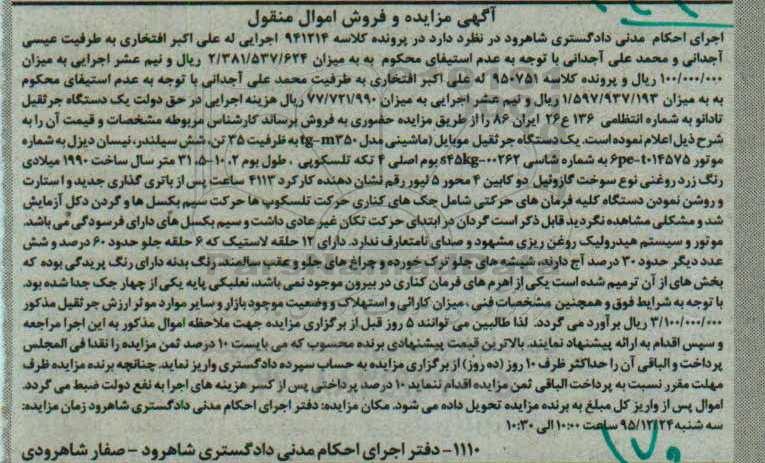 آگهی مزایده و فروش اموال منقول
اجرای احکام مدنی دادگستری شاهرود در نظرد دارد در پرونده کلاسه ۹۴۱۲۱۴ اجرایی له علی اکبر افتخاری به طرفیت عیسی
آجدانی و محمد علی آجدانی با توجه به عدم استیفای محکوم به به میزان ۲/۳۸۱/۵۳۷/۶۲۴ ریال و نیم عشر اجرایی به میزان
۱۰۰/۰۰۰/۰۰۰ ریال و پرونده کلاسه ۹۵۰۷۵۱ له علی اکبر افتخاری به طرفیت محمد علی آجدانی با توجه به عدم استیفای محکوم
به به میزان ۱/۵۹۷/۹۳۷/۱۹۳ ریال و نیم عشر اجرایی به میزان ۷۷/۷۲۱/۹۹۰ ریال هزینه اجرایی در حق دولت یک دستگاه جرثقیل
تادانو به شماره انتظامی ۱۳۶ ع۲۶ ایران ۸۶ را از طریق مزایده حضوری به فروش برساند کارشناس مربوطه مشخصات و قیمت آن را به
شرح ذیل اعلام نموده است. یک دستگاه جرثقیل موبایل (ماشینی مدل tg-m۳۵۰ به ظرفیت ۳۵ تن، شش سیلندر، نیسان دیزل به شماره
موتور ۶pe-t۰۱۴۵۷۵ به شماره شاسی s۴۵kg-۰۰۲۶۲ بوم اصلی ۴ تکه تلسکوپی ، طول بوم ۱۰.۲-۳۱.۵ متر سال ساخت ۱۹۹۰ میلادی
رنگ زرد روغنی نوع سوخت گازوئیل دو کابین ۴ محور ۵ لیور رقم نشان دهنده کارکرد ۴۱۱۳ ساعت پس از باتری گذاری جدید و استارت
و روشن نمودن دستگاه کلیه فرمان های حرکتی شامل جک های کناری حرکت تلسکوپ ها حرکت سیم بکسل ها و گردن دکل آزمایش
شد و مشکلی مشاهده نگردید قابل ذکر است گردان در ابتدای حرکت تکان غیر عادی داشت و سیم بکسل های دارای فرسودگی می باشد.
موتور و سیستم هیدرولیک روغن ریزی مشهود و صدای نامتعارف ندارد. دارای ۱۲ حلقه لاستیک که ۶ حلقه جلو حدود ۶۰ درصد و شش
عدد دیگر حدود ۳۰ درصد آج دارند، شیشه های جلو ترک خورده و چراغ های جلو و عقب سالمند، رنگ بدنه دارای رنگ پریدگی بوده که
بخش های از آن ترمیم شده است یکی از اهرم های فرمان کناری در بیرون موجود نمی باشد، نعلبکی پایه یکی از چهار جک جدا شده بود.
با توجه به شرایط فوق و همچنین مشخصات فنی ، میزان کارائی و استهلاک و وضعیت موجود بازار و سایر موارد موثر ارزش جرثقیل مذکور
۳/۱۰۰/۰۰۰/۰۰۰ ریال برآورد می گردد. لذا طالبین می توانند ۵ روز قبل از برگزاری مزایده جهت ملاحظه اموال مذکور به این اجرا مراجعه
و سپس اقدام به ارائه پیشنهاد نمایند. بالاترین قیمت پیشنهادی برنده محسوب که می بایست ۱۰ درصد ثمن مزایده را نقدا فی المجلس
پرداخت و الباقی آن را حداکثر ظرف ۱۰ روز (ده روز) از برگزاری مزایده به حساب سپرده دادگستری واریز نماید. چنانچه برنده مزایده ظرف
مهلت مقرر نسبت به پرداخت الباقی ثمن مزایده اقدام ننماید ۱۰ درصد پرداختی پس از کسر هزینه های اجرا به نفع دولت ضبط می گردد.
اموال پس از واریز کل مبلغ به برنده مزایده تحویل داده می شود. مکان مزایده: دفتر اجرای احکام مدنی دادگستری شاهرود زمان مزایده:
سه شنبه ۹۵/۱۲/۲۴ ساعت ۱۰:۰۰ الی ۱۰:۳۰
۱۱۱۰- دفتر اجرای احکام مدنی دادگستری شاهرود - صفار شاهرودی